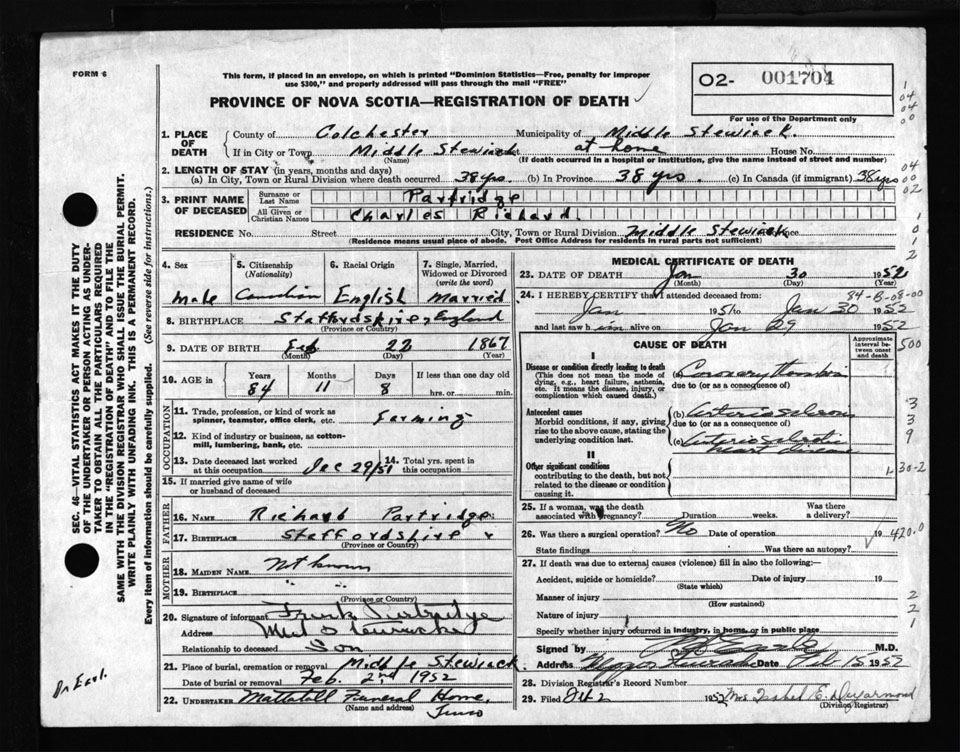 FORM 6
This form, if placed in an envelope, on which is printed "Dominion Statistics—Free, penalty for improper
use $300," and properly addressed will pass through the mail "FREE"
02- 001704
For use of the Department only
PROVINCE OF NOVA SCOTIA—REGISTRATION OF DEATH
1. PLACE OF DEATH { County of Colchester Municipality of Middle Stewiack.
If in City or Town Middle Stewiack at home House No.
(Name) (If death occurred in a hospital or institution, give the name instead of street and number)
2. LENGTH OF STAY (in years, months and days)
(a) In City, Town or Rural Division where death occurred 38 yrs. (b) In Province 38 yrs. (c) In Canada (if immigrant) 38 yrs
3. PRINT NAME OF DECEASED { Surname or Last Name Partridge
All Given or Christian Names Charles Richard.
RESIDENCE No. Street City, Town or Rural Division Middle Stewiack
(Residence means usual place of abode. Post Office Address for residents in rural parts not sufficient)
4. Sex 5. Citizenship (Nationality) 6. Racial Origin 7. Single, Married, Widowed or Divorced (write the word)
Male Canadian English Married
8. BIRTHPLACE Staffordshire, England
(Province or Country)
9. DATE OF BIRTH Feb 22 1867
(Month) (Day) (Year)
10. AGE in Years Months Days If less than one day old
84 11 8 hrs. or min.
OCCUPATION
11. Trade, profession, or kind of work as spinner, teamster, office clerk, etc. Farming
12. Kind of industry or business, as cotton-mill, lumbering, bank, etc.
13. Date deceased last worked at this occupation Dec 29/51 14. Total yrs. spent in this occupation
15. If married give name of wife or husband of deceased
FATHER
16. NAME Richard Partridge
17. BIRTHPLACE Staffordshire
(Province or Country)
MOTHER
18. MAIDEN NAME Not known
19. BIRTHPLACE " "
(Province or Country)
20. Signature of informant Frank Partridge
Address
Relationship to deceased Son
21. Place of burial, cremation or removal Middle Stewiack
Date of burial or removal Feb. 2nd 1952
22. UNDERTAKER Mattatall Funeral Home,
(Name and address) Truro
MEDICAL CERTIFICATE OF DEATH
23. DATE OF DEATH Jan 30 1952
(Month) (Day) (Year)
24. I HEREBY CERTIFY that I attended deceased from:
84-B-08-00
Jan 1951 to Jan 30 1952
and last saw him alive on Jan 29 1952
CAUSE OF DEATH
Approximate interval between onset and death
I
Disease or condition directly leading to death
(This does not mean the mode of dying, e.g., heart failure, asthenia, etc. It means the disease, injury, or complication which caused death.)
Coronary
due to (or as a consequence of)
Antecedent causes
Morbid conditions, if any, giving rise to the above cause, stating the underlying condition last.
(b)
due to (or as a consequence of)
(c) heart disease
II
Other significant conditions
contributing to the death, but not related to the disease or condition causing it.
25. If a woman, was the death associated with pregnancy? Duration weeks. Was there a delivery?
26. Was there a surgical operation? No Date of operation 19
State findings Was there an autopsy?
27. If death was due to external causes (violence) fill in also the following:—
Accident, suicide or homicide? Date of injury 19
(State which)
Manner of injury
(How sustained)
Nature of injury
Specify whether injury occurred in industry, in home, or in public place
Signed by M.D.
Address Date Feb 15 1952
28. Division Registrar's Record Number
29. Filed 1952 Mrs Isabel E. DeWarmond
(Division Registrar)
SEC. 46—VITAL STATISTICS ACT MAKES IT THE DUTY
OF THE UNDERTAKER OR PERSON ACTING AS UNDER-
TAKER TO OBTAIN ALL THE PARTICULARS REQUIRED
IN THE "REGISTRATION OF DEATH" AND TO FILE THE
SAME WITH THE DIVISION REGISTRAR WHO SHALL ISSUE THE BURIAL PERMIT.
WRITE PLAINLY WITH UNFADING INK. THIS IS A PERMANENT RECORD.
Every item of information should be carefully supplied. (See reverse side for instructions.)
Dr Earl.